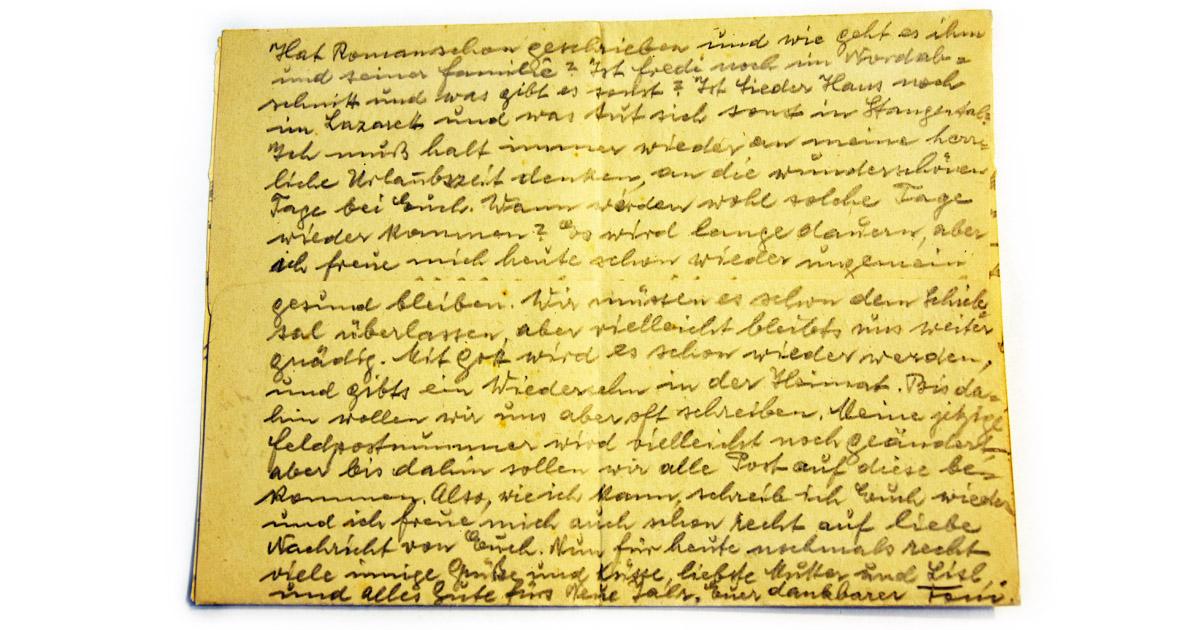 Hat Roman schon geschrieben und wie geht es ihm
und seiner Familie? Ist Fredi noch im Nordab=
schnitt und was gibt es sonst? Ist Lieder Hans noch
im Lazarett und was tut sich sonst in Stangental?
Ich muß halt immer wieder an meine herr=
liche Urlaubszeit denken, an die wunderschönen
Tage bei Euch. Wann werden wohl solche Tage
wieder kommen? Es wird lange dauern, aber
ich freue mich heute schon wieder ungemein
gesund bleiben. Wir müssen es schon dem Schick
sal überlassen, aber vielleicht bleibts uns weiter
gnädig. Mit Gott wird es schon wieder werden,
und gibts ein Wiedersehn in der Heimat. Bis da=
hin wollen wir uns aber oft schreiben. Meine jetzige
Feldpostnummer wird vielleicht noch geändert,
aber bis dahin sollen wir alle Post auf diese be=
kommen. Also, wie ich kann, schreib ich Euch wieder
und ich freue mich auch schon recht auf liebe
Nachricht von Euch. Nun für heute nochmals recht
viele innige Grüße und Küsse, liebste Mutter und Lisl,
und alles Gute fürs Neue Jahr. Euer dankbarer Toni.